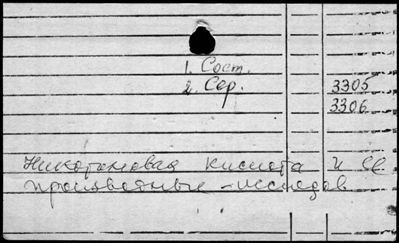 1. Сост.
2. Сер. 3305
3306
Никотиновая кислота и ее
производные - исследов